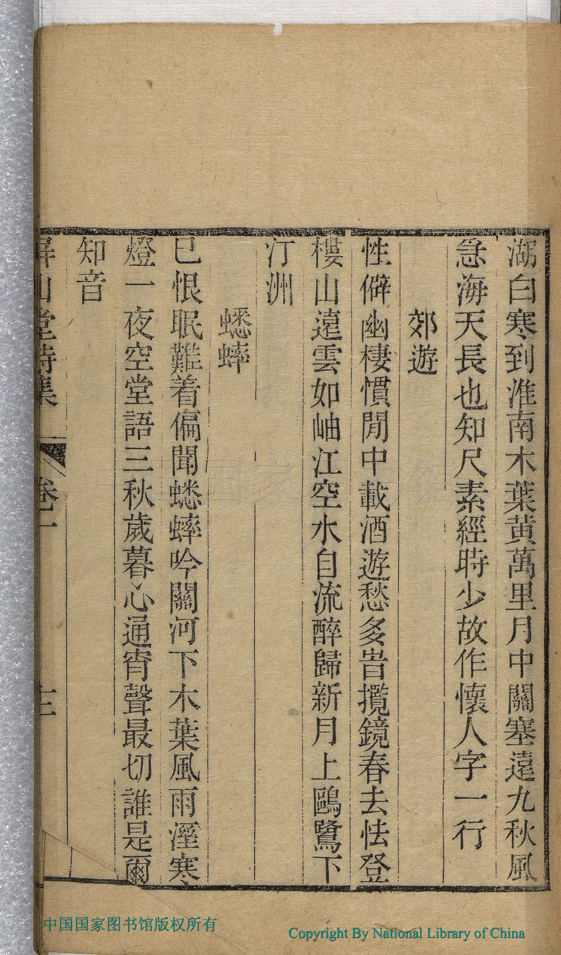 湖白寒到淮南木葉黃萬里月中關塞遠九秋風
急海天長也知尺素經時少故作懷人字一行
郊遊
性僻幽棲慣閒中載酒遊愁多呰攬鏡春去怯登
樓山遠雲如岫江空水自流醉歸新月上鷗鷺下
汀洲
蟋蟀
已恨眠難着偏聞蟋蟀吟關河下木葉風雨溼寒
燈一夜空堂語三秋歲暮心通宵聲最切誰是爾
知音
屏山堂詩集 卷一
中国国家图书馆版权所有
Copyright By National Library of China